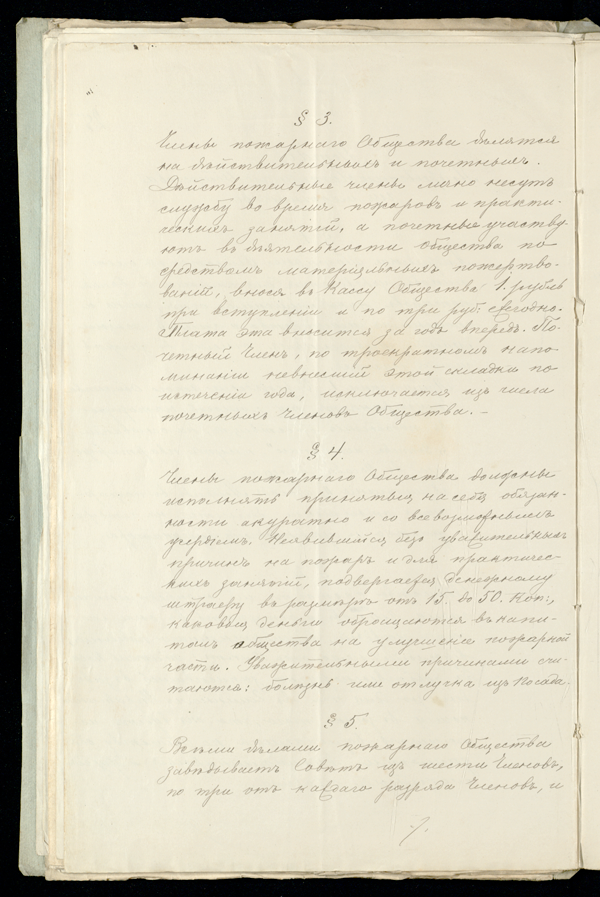 § 3.
Члены пожарнаго Общества дѣлятся
на дѣйствительныхъ и почетныхъ.
Дѣйствительные члены лично несутъ
службу во время пожаровъ и практи-
ческихъ занятій, а почетные участву-
ютъ въ дѣятельности общества по
средствомъ матеріальныхъ пожертво-
ваній, внося въ Кассу Общества 1. рубль
при вступленіи и по три руб: ежегодно.
Плата эта вносится за годъ впередъ. По-
четный Членъ, по троекратномъ напо-
минаніи невнесшій этой складки по
истеченіи года, исключается изъ числа
почетныхъ Членовъ Общества. –
§ 4.
Члены пожарнаго Общества должны
исполнять принятыя на себя обязан-
ности акуратно и со всевозможнымъ
усердіемъ. Неявившійся безъ уважительныхъ
причинъ на пожаръ и для практичес-
кихъ занятій, подвергается денежному
штрафу въ размѣрѣ отъ 15. до 50. коп:,
каковыя деньги обращаются въ капи-
талъ общества на улучшеніе пожарной
части. Уважительными причинами счи-
таются: болѣзнь или отлучка изъ посада.
§ 5.
Всѣми дѣлами пожарнаго Общества
завѣдываетъ Совѣтъ изъ шести Членовъ,
по три отъ каждаго разряда Членовъ, и